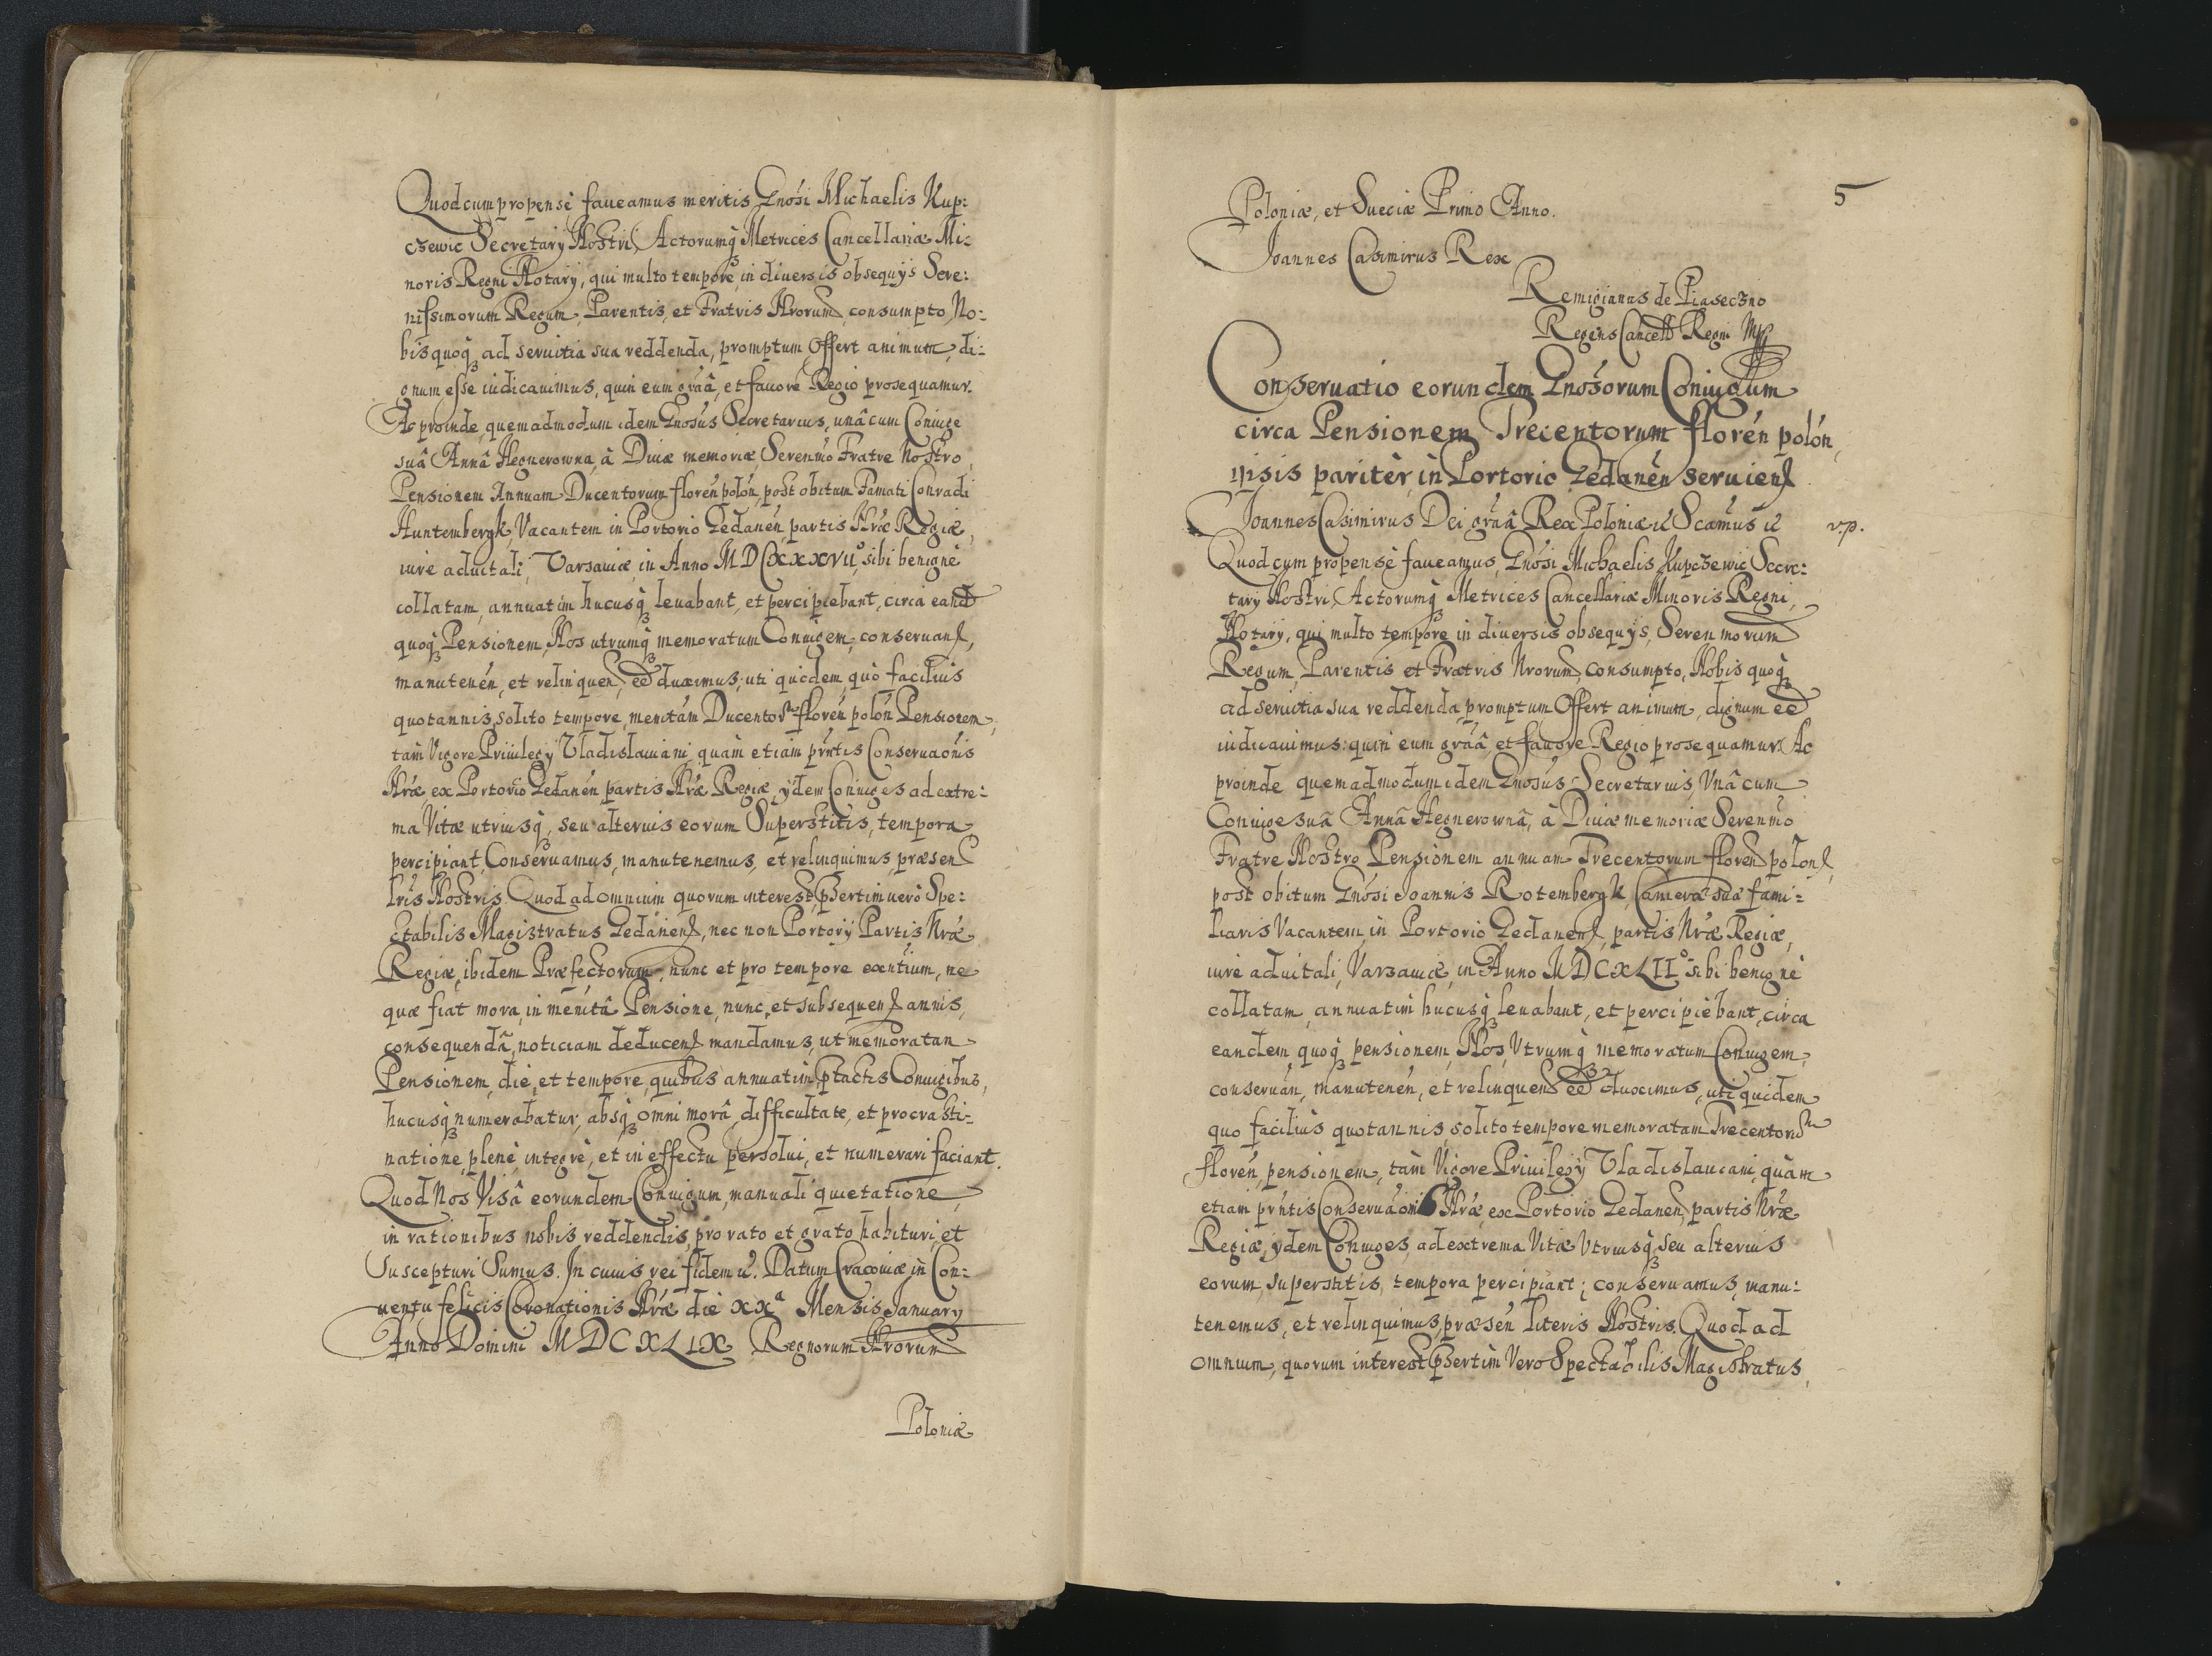 Quod cum propensè faueamus meritis Gnősi Michaelis Kup:
czewic Secretarÿ Nostri, Actorumq́ Metrices Cancellariæ Mi:
noris Regni Notarÿ, qui multo tempore, in diuersis obsequÿs Sere:
nissimorum Regum, Parentis, et Fratris Nrorum, consumpto, No:
bis quoq́ ad seruitia sua reddenda, promptum offert animum, di:
gnum esse iudicauimus, quin eum grãâ, et fauore Regio prosequamur.
Ac proinde, quemadmodum idem Gnosus Secretarius, unâ cum Coniuge
suâ Annâ Hegnerowna, à Diuæ memoriæ, Serenmo Fratre Nostro,
Pensionem Annuam Ducentorum florén polón, post obitum Famati Conradi
Huntembergk, Vacantem in Portorio Gedanén, partis Nræ Regiæ,
iure aduitali, Varsauiæ, in Anno MDCXXXVII°, sibi benignè
collatam, annuatim hucusq́ leuabant, et percipiebant, circa eand
quoq́ Pensionem, Nos utrumq́ memoratum Coniugem, conseruan,
manutenén, et relinquen, eé duximus; uti quidem, quò facilius
quotannis, solito tempore, memtám Ducentor florén polón Pensionem,
tàm Vigore Priuilegÿ Vladislauiani, quàm etiam pŕntis Conseruaónis
Nræ ex Portorio Gedanén, partis Nræ Regiæ, ÿdem Coniuges ad extre:
ma Vitæ utriusq́, seu alterius eorum Superstitis, tempora
percipiant, Conseruamus, manutenemus, et relinquimus, præsen
lris Nostris. Quod ad omnium quorum interest, pŝertim uerò Spe:
ctabilis Magistratus Gedanen, nec non Portorÿ Partis Nræ
Regiæ, ibidem Præfectorum, nunc et pro tempore exntium, ne
quæ fiat mora, in memtâ Pensione, nunc, et subsequen annis,
consequendâ, noticiam deducen mandamus, ut memoratam
Pensionem, die, et tempore, quibus annuatim ptactis Coniugibus,
hucusq́ numerabatur, absq́ omni morâ, difficultate, et procrasti:
natione, plenè, integrè, et in effectu persolui, et numerari faciant.
Quod Nos Visâ eorundem Coniugum, manuali quietatione,
in rationibus nobis reddendis, pro rato et grato habituri, et
Suscepturi Sumus. In cuius rei fidem &. Datum Cracouiæ in Con:
uentu felicis Coronationis Nræ die XXa Mensis January
Anno Domini MDCXLIX Regnorum Nrorum
Poloniæ
5
Poloniæ, et Sueciæ Primo Anno.
Joannes Casimirus Rex
Remigianus de Piaseczno
Regens Cancell Regni Mp
Conseruatio eorundem Gnosorum Coniugum
circa Pensionem Trecentorum florén polón,
ipsis pariter in Portorio Gedanén seruien
Joannes Casimirus Dei grãâ Rex Poloniæ & Scamus &
v.p.
Quod cum propensè faueamus, Gnósi Michaelis Kupczewic Secre:
tarÿ Nostri, Actorumq́ Metrices Cancellariæ Minoris Regni,
Notarÿ, qui multo tempore in diuersis obsequÿs, Serenmorum
Regum, Parentis et Fratris Nrorum, consumpto, Nobis quoq́
ad seruitia sua reddenda, promptum offert animum, dignum eé
iudicauimus: quin eum grãâ, et fauore Regio prosequamur. Ac
proinde quemadmodum idem Gnosus Secretarius, Unâ cum
Coniuge suâ Annâ Hegnerownâ, à Diuæ memoriæ Serenmo
Fratre Nostro Pensionem annuam Trecentorum floren polon,
post obitum Gnósi Joannis Rotembergk, Cameræ suæ fami:
liaris Vacantem, in Portorio Gedanen, partis Nræ Regiæ,
iure aduitali, Varsauiæ, in Anno MDCXLII° sibi benignè
collatam, annuatim hucusq́ leuabant, et percipiebant, circa
eandem quoq́ pensionem, Nos, Utrumq́ memoratum Coniugem,
conseruán, manutenén, et relinquen eé duximus, uti quidem
quo facilius quotannis, solito tempore memoratam Trecentorum
florén, pensionem, tàm Vigore Priuilegÿ Vladislauiani, quàm
etiam pŕntis Conseruáonis Nræ, ex Portorio Gedanen, partis Nræ
Regiæ, ÿdem Coniuges, ad extrema Vitæ Utriusq́, seu alterius
eorum superstitis, tempora percipiant; conseruamus, manu:
tenemus, et relinquimus, præsén literis Nostris. Quod ad
omnium, quorum interest, pŝertim Vero Spectabilis Magistratus,